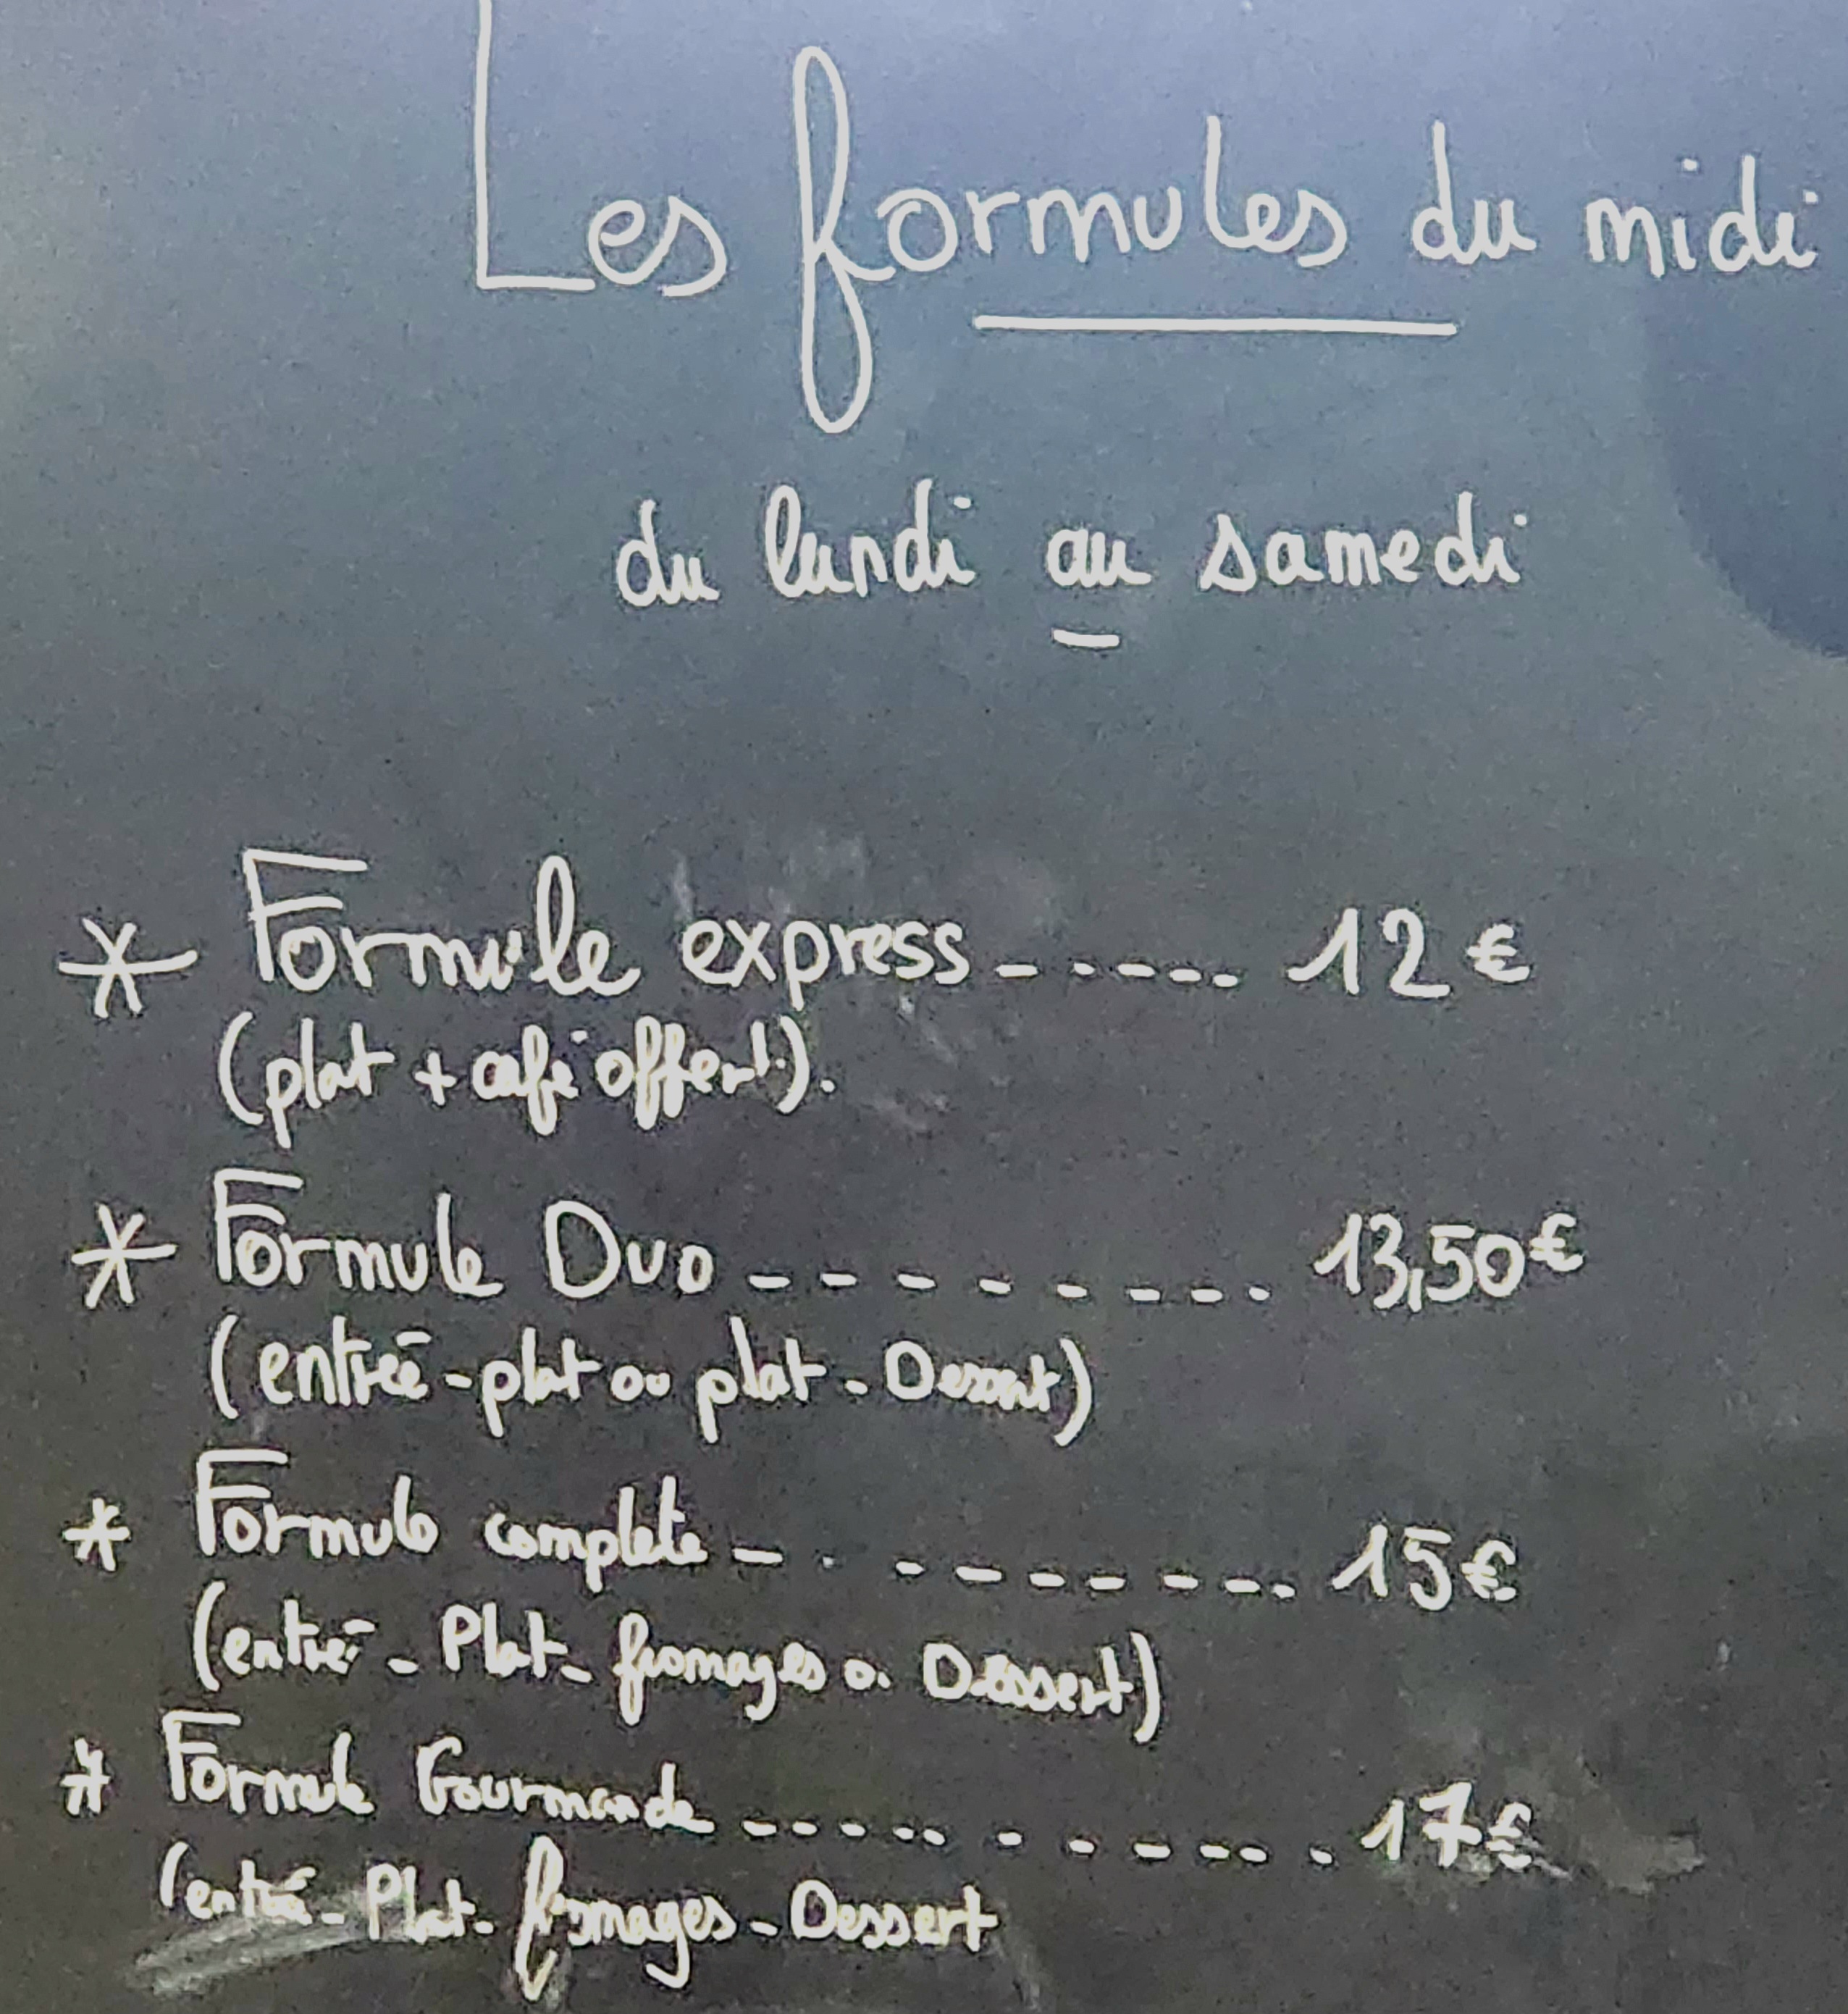 Les formules du midi
du lundi au samedi
* Formule express ------ 12 €
(plat + café offert!).
* Formule Duo --------- 13,50€
(entrée - plat ou plat - Dessert)
* Formule complete - . ------- 15€
(entrée - Plat - fromages ou Dessert)
* Formule Gourmande ------------ 17€
(entrée - Plat - fromages - Dessert